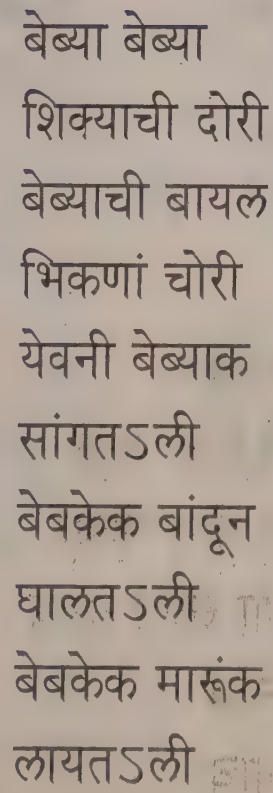 बेब्या बेब्या
शिक्याची दोरी
बेब्याची बायल
भिकणां चोरी
येवनी बेब्याक
सांगतऽली
बेबकेक बांदून
घालतऽली
बेबकेक मारूंक
लायतऽली